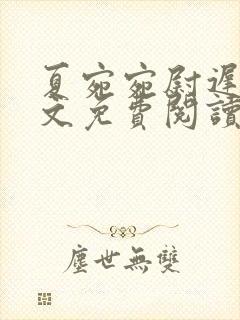 夏宛宛尉遲
文免費閱讀
塵世無雙